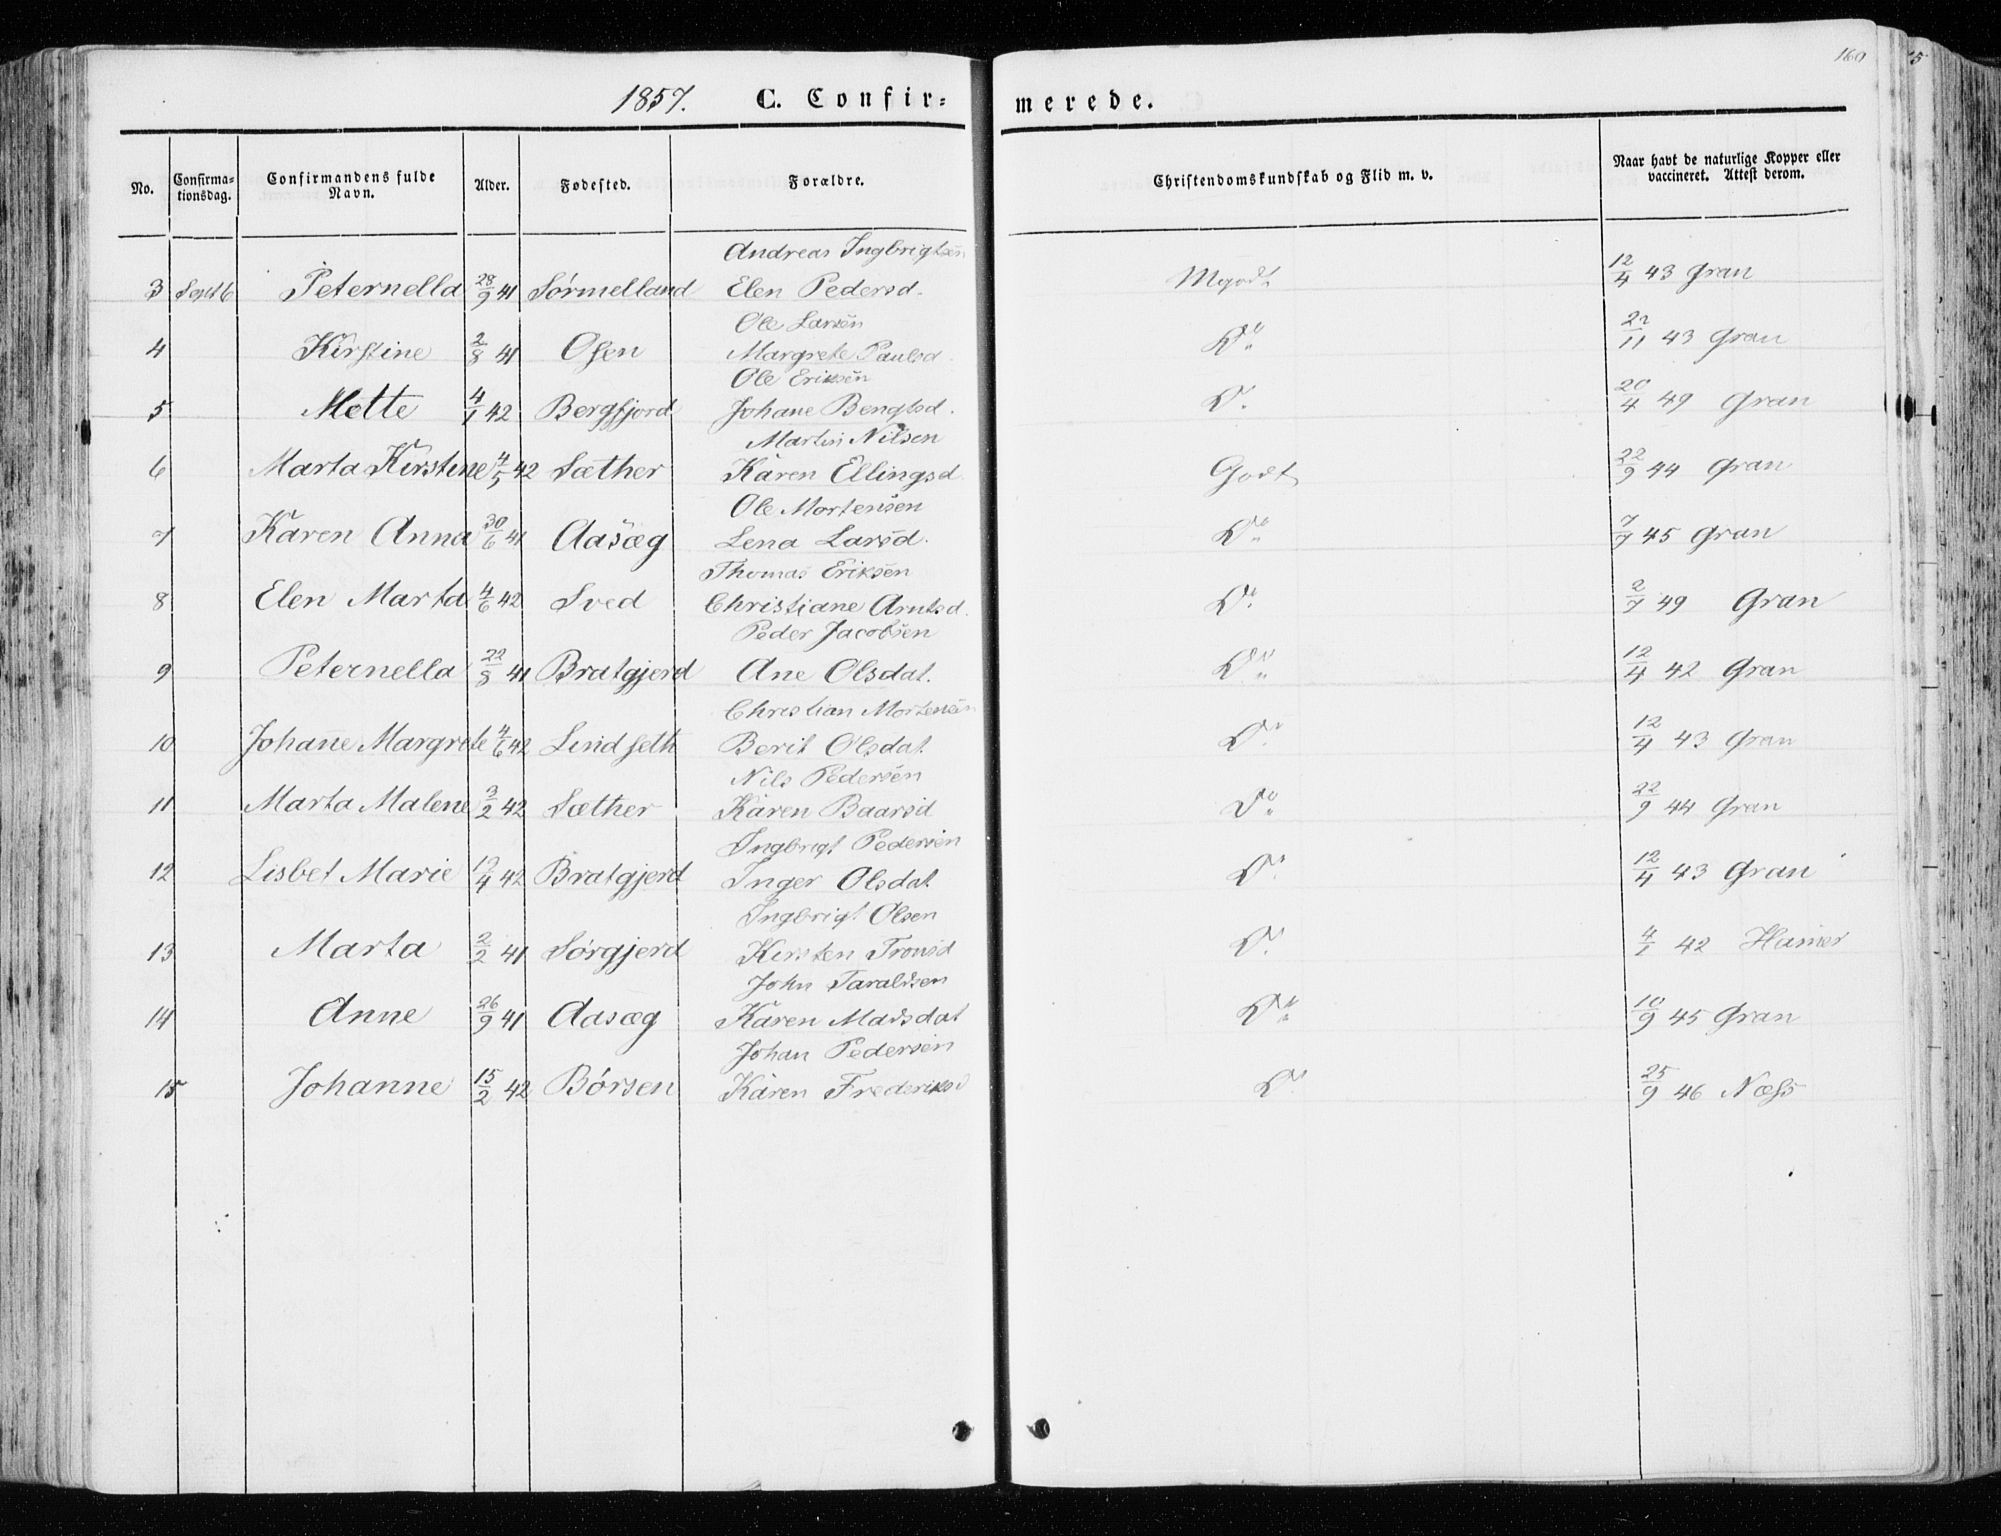 160
5
1857. C. Confir- merede.
No. Confirma-tionsdag. Confirmandens fulde Navn. Alder. Fødested. Forældre. Christendomskundskab og Flid m. v. Naar havt de naturlige Kopper eller vaccineret. Attest derom.
Andreas Ingbrigtsen
3 Sept 6 Peternella 28/9 41 Sørmelland Elen Pedersd. Mgodt 12/4 43 Gran
Ole Larsen
4 Kirstine 2/8 41 Osen Margrete Paulsd. Do 22/11 43 Gran
Ole Eriksen
5 Mette 4/1 42 Bergfjord Johane Bengtsd. Do 20/4 49 Gran
Martin Nilsen
6 Marta Kirstine 4/5 42 Sæther Karen Ellingsd Godt 22/9 44 Gran
Ole Mortensen
7 Karen Anna 30/6 41 Aasæg Lena Larsd. Do 7/7 45 Gran
Thomas Eriksen
8 Elen Marta 4/6 42 Sved Christiane Arntsd. Do 2/7 49 Gran
Peder Jacobsen
9 Peternella 22/8 41 Bratgjerd Ane Olsdat. Do 12/4 42 Gran
Christian Mortensen
10 Johane Margrete 4/6 42 Lindseth Berit Olsdat Do 12/4 43 Gran
Nils Pedersen
11 Marta Malene 3/2 42 Sæther Karen Baarsd Do 22/9 44 Gran
Ingbrigt Pedersen
12 Lisbet Marie 19/4 42 Bratgjerd Inger Olsdat Do 12/4 43 Gran
Ingbrigt Olsen
13 Marta 2/2 41 Sørgjerd Kirsten Tronsd Do 4/1 42 Hamer
John Taraldsen
14 Anne 26/9 41 Aasæg Karen Madsdat Do 10/9 45 Gran
Johan Pedersen
15 Johanne 15/2 42 Børsen Karen Frederiksd Do 25/9 46 Næss